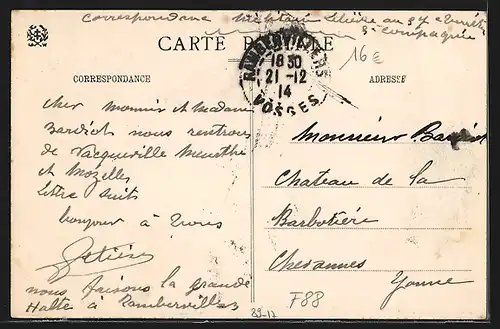 Correspondance militaire au 37
compagnie
CARTE POSTALE
16€
RAMBERVILLERS
18 30
21-12
14
VOSGES
CORRESPONDANCE
ADRESSE
Cher Monsieur et Madame
nous rentrons
de Vacqueville Meurthe
et Mozelle
lettre suit
bonjour à vous
nous faisons la grande
Halte à Rambervillers
Monsieur
Chateau de la
Barbotière
Chevannes
Yonne
F88